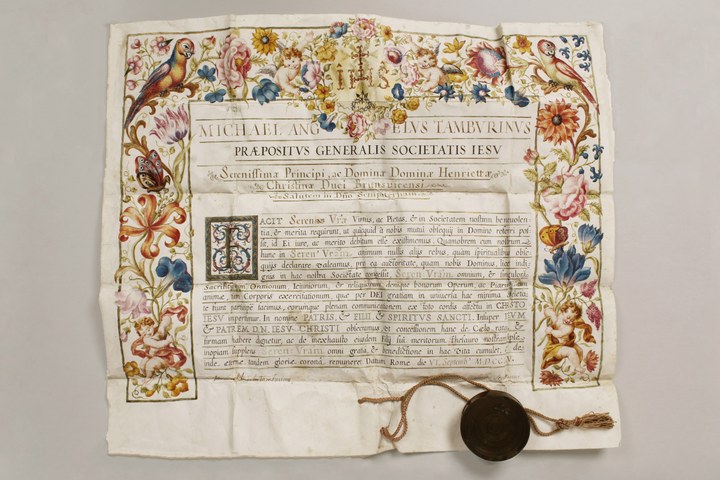 IHS
MICHAEL ANGELVS TAMBVRINVS
PRÆPOSITVS GENERALIS SOCIETATIS IESV
Serenissimæ Principi, ac Dominæ Dominæ Henriettæ
Christinæ Duci Brunsvicensi
Salutem in Dño Sempiternam
FACIT Serenæ Vræ Virtus, ac Pietas, & in Societatem nostram benevolen-
tia, & merita requirunt, ut quicquid à nobis mutui obsequij in Domino referri pos-
sit, id Ei iure, ac merito debitum esse existimemus. Quamobrem cum nostrum
hunc in Seren. Vram, animum nulla alia rebus, quàm spiritualibus obse-
quijs declarare valeamus, pro ea auctoritate, quam nobis Dominus, licet indi-
gnis in hac nostra Societate concessit, Seren Vram, omnium, & singulorum
Sacrificiorum, Orationum, Ieiuniorum, & reliquorum denique bonorum Operum, ac Piarum tum
animæ, tum Corporis exercitationum, quæ per DEI gratiam in universa hac minima Societa-
te fiunt participem facimus, earumque plenam communicationem ex toto cordis affectu in CHRISTO
IESU impertimur. In nomine PATRIS, & FILII, & SPIRITVS SANCTI. Insuper DEVM,
& PATREM D.N. IESV CHRISTI obsecramus, ut concessionem hanc de Cælo ratam, &
firmam habere dignetur, ac de inexhausto eiusdem Filij sui meritorum, thesauro nostram
inopiam supplens Seren Vram omni gratia, & benedictione in hac Vita cumulet, & de-
inde, æternæ tandem gloriæ coronâ, remuneret. Datum, Romæ die VI. Septemb. M.DCC.X.